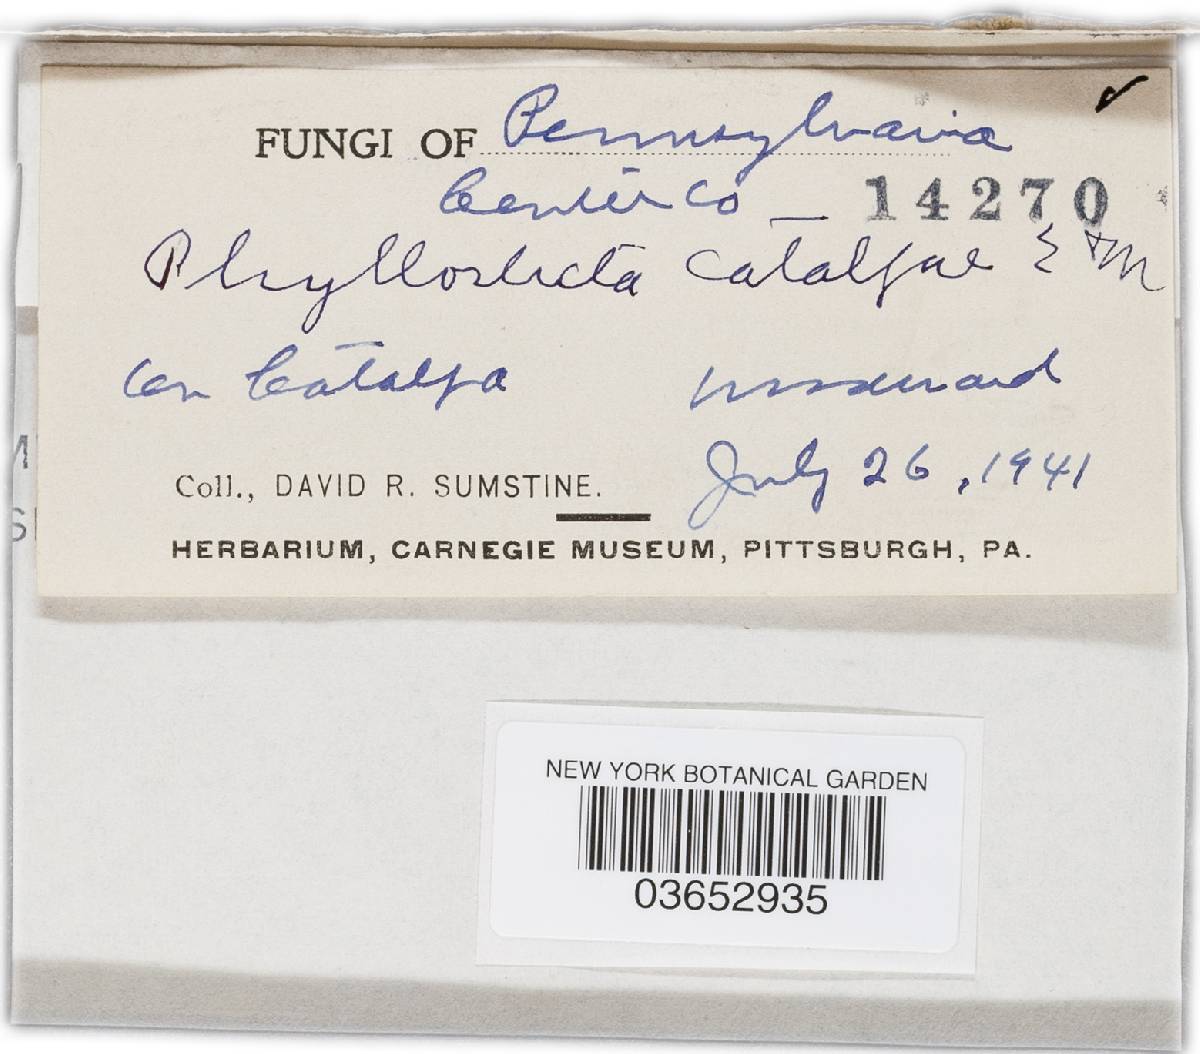 FUNGI OF Pennsylvania
Center Co — 14270
Phyllosticta catalpae E & M
on Catalpa Woodward
July 26, 1941
Coll., DAVID R. SUMSTINE.
HERBARIUM, CARNEGIE MUSEUM, PITTSBURGH, PA.
NEW YORK BOTANICAL GARDEN
03652935